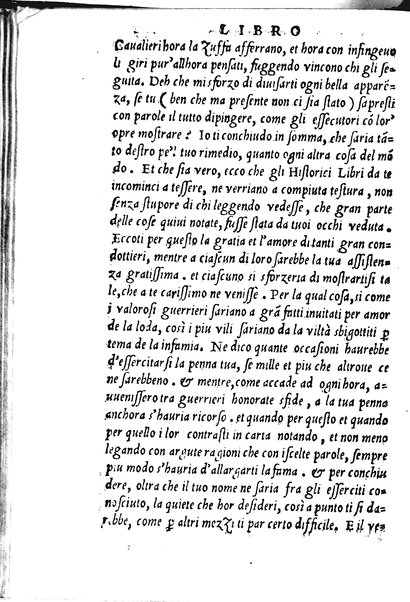 LIBRO
Caualieri hora la Zuffa afferrano, et hora con infingeuo
li giri pur'allhora pensati, fuggendo vincono chi gli se-
guita. Deh che mi sforzo di diuisarti ogni bella apparē-
za, se tu ( ben che ma presente non ci sia stato ) sapresti
con parole il tutto dipingere, come gli essecutori cō lor'
opre mostrare ? Io ti conchiudo in somma, che saria tā-
to destro pe'l tuo rimedio, quanto ogni altra cosa del mō
do. Et che sia vero, ecco che gli Historici Libri da te
incominci a tessere, ne verriano a compiuta testura, non
senza stupore di chi leggendo vedesse, che gran parte
delle cose quiui notate, fusse stata da tuoi occhi veduta.
Eccoti per questo la gratia et l'amore di tanti gran con-
dottieri, mentre a ciascun di loro sarebbe la tua assisten-
za gratissima. et ciascuno si sforzeria di mostrartisi ta
le, che a te carissimo ne venisse. Per la qual cosa, si come
i valorosi guerrieri sariano a grā fatti inuitati per amor
de la loda, così i piu vili sariano da la viltà sbigottiti ꝑ
tema de la infamia. Ne dico quante occasioni haurebbe
d'essercitarsi la penna tua, se mille et piu che altroue ce
ne sarebbeno. & mentre, come accade ad ogni hora, a-
uuenissero tra guerrieri honorate sfide, a la tua penna
anchora s'hauria ricorso. et quando per questo et quando
per quello i lor contrasti in carta notando, et non meno
legando con argute ragioni che con iscelte parole, sempre
piu modo s'hauria d'allargarti la fama. & per conchiu
dere, oltra che il tuo nome ne saria fra gli esserciti co-
nosciuto, la quiete che hor desideri, così a punto ti si da-
rebbe, come ꝑ altri mezzi ti par certo difficile. E il ve-